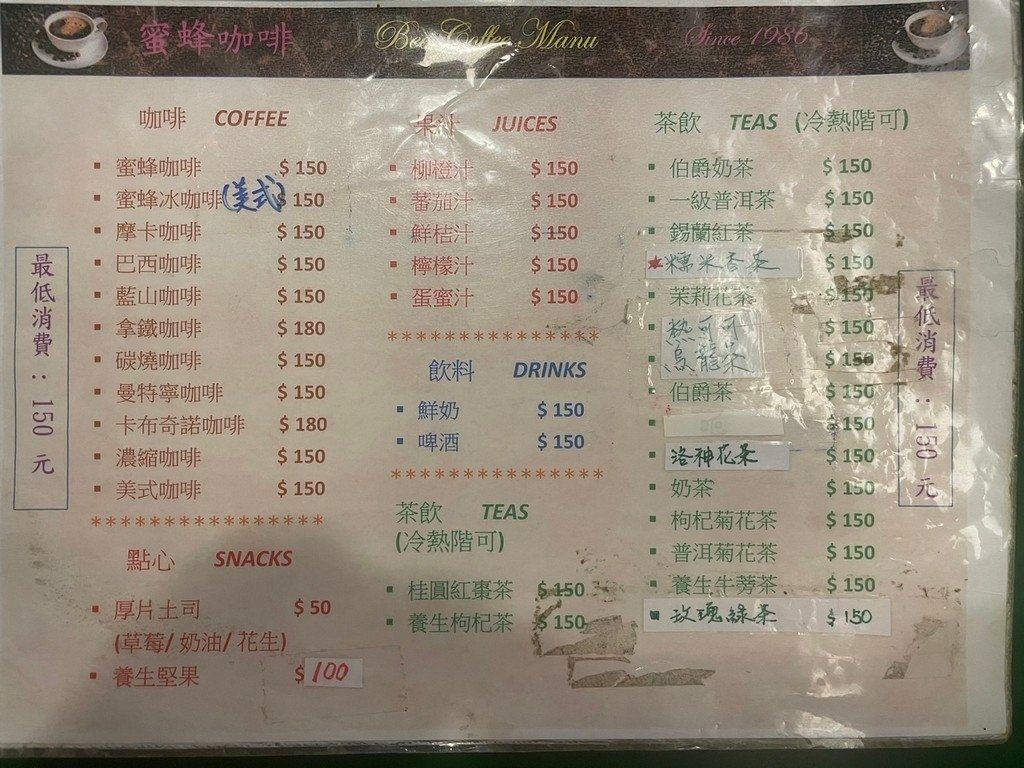 蜜蜂咖啡
Bee Coffee Manu
Since 1986
最低消費：150 元
咖啡 COFFEE
▪ 蜜蜂咖啡 $ 150
▪ 蜜蜂冰咖啡(美式) $ 150
▪ 摩卡咖啡 $ 150
▪ 巴西咖啡 $ 150
▪ 藍山咖啡 $ 150
▪ 拿鐵咖啡 $ 180
▪ 碳燒咖啡 $ 150
▪ 曼特寧咖啡 $ 150
▪ 卡布奇諾咖啡 $ 180
▪ 濃縮咖啡 $ 150
▪ 美式咖啡 $ 150
***************
點心 SNACKS
▪ 厚片土司 $ 50
(草莓/ 奶油/ 花生)
▪ 養生堅果 $ 100
果汁 JUICES
▪ 柳橙汁 $ 150
▪ 蕃茄汁 $ 150
▪ 鮮桔汁 $ 150
▪ 檸檬汁 $ 150
▪ 蛋蜜汁 $ 150
**************
飲料 DRINKS
▪ 鮮奶 $ 150
▪ 啤酒 $ 150
**************
茶飲 TEAS
(冷熱階可)
▪ 桂圓紅棗茶 $ 150
▪ 養生枸杞茶 $ 150
茶飲 TEAS (冷熱階可)
▪ 伯爵奶茶 $ 150
▪ 一級普洱茶 $ 150
▪ 錫蘭紅茶 $ 150
★糯米香茶 $ 150
▪ 茉莉花茶 $ 150
▪ 熱可可 $ 150
▪ 烏龍茶 $ 150
▪ 伯爵茶 $ 150
▪ $ 150
▪ 洛神花茶 $ 150
▪ 奶茶 $ 150
▪ 枸杞菊花茶 $ 150
▪ 普洱菊花茶 $ 150
▪ 養生牛蒡茶 $ 150
▪ 玫瑰綠茶 $ 150
最低消費：150 元